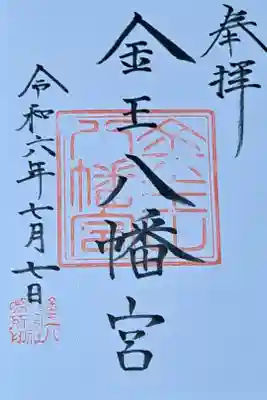 奉拝
金王八幡宮
令和六年七月七日
金王八幡宮